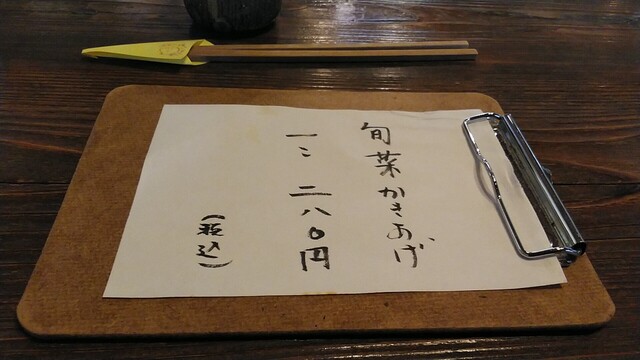 旬菜かきあげ
一ミ 二八〇円
(税込)